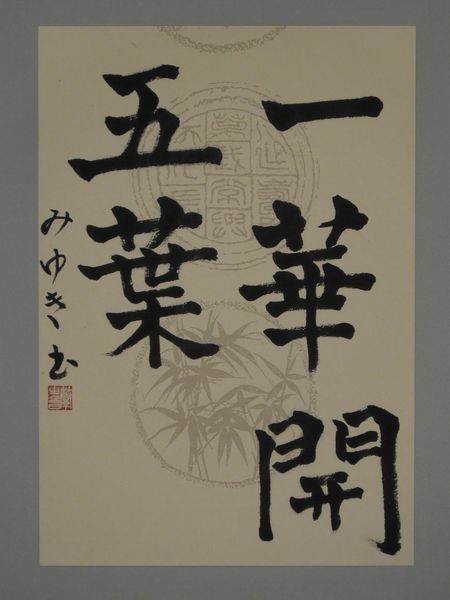 一華開
五葉
みゆき書